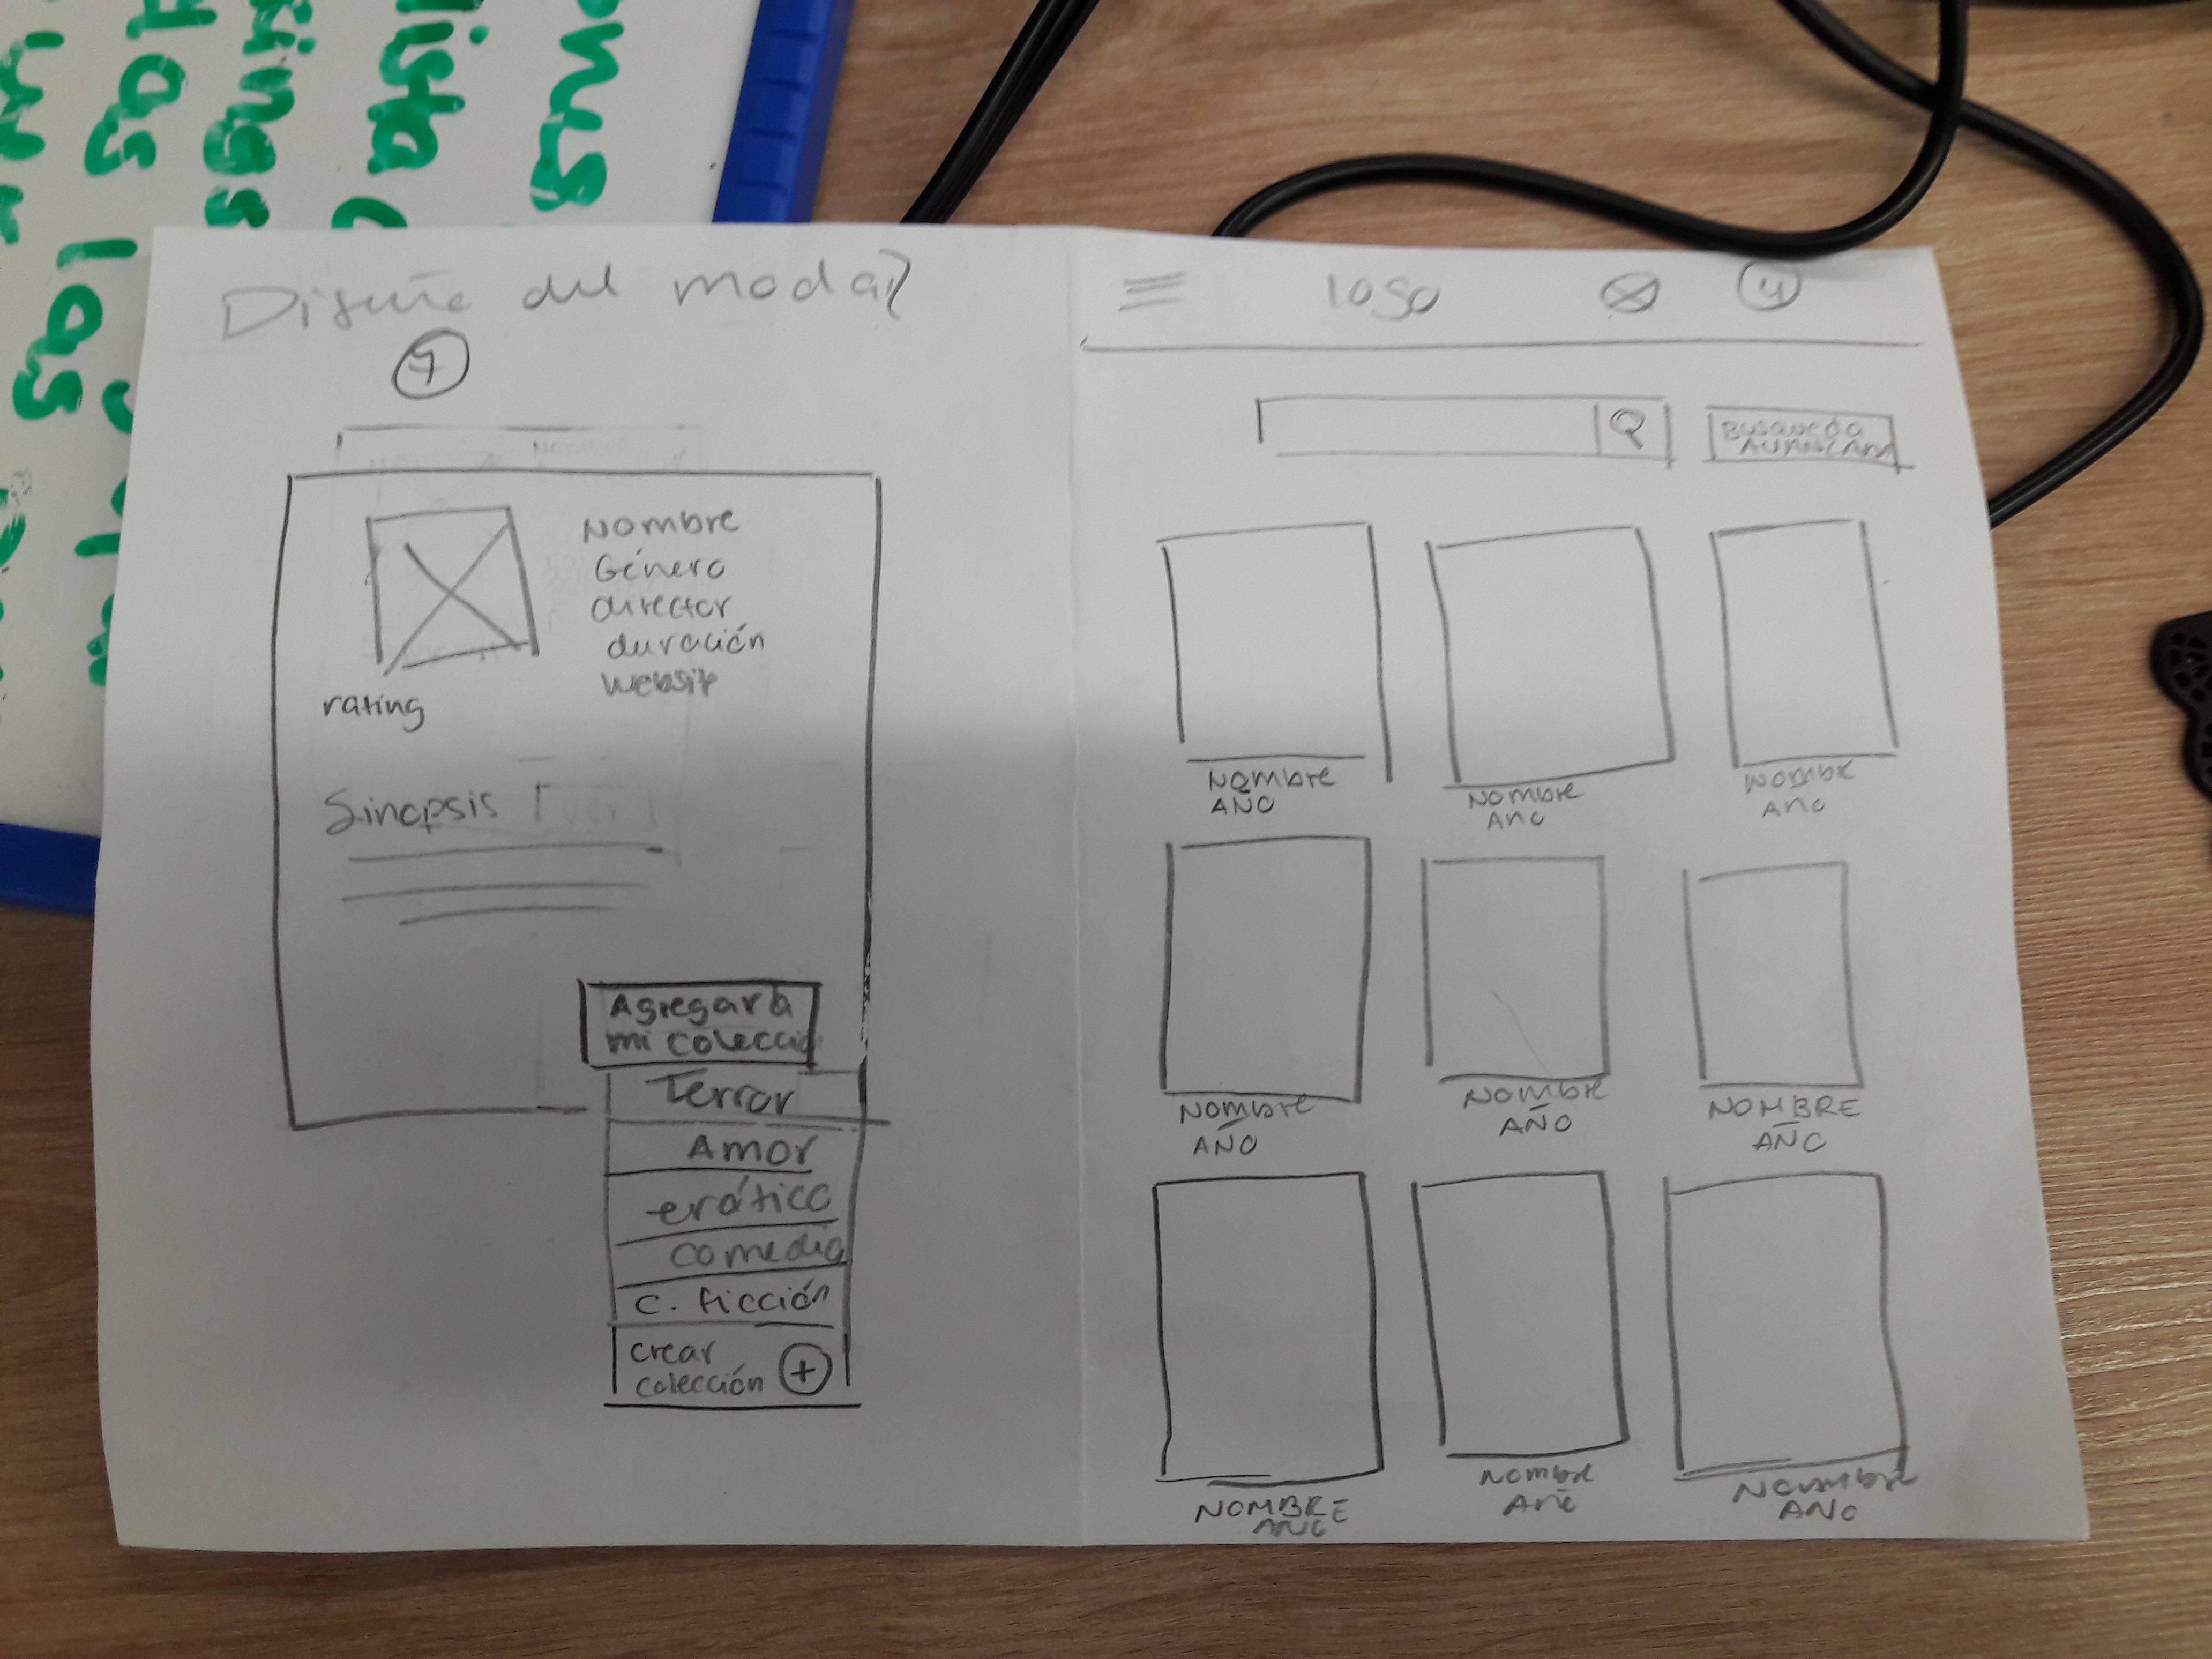 Diseño del modal
7
Nombre
Género
director
duración
website
rating
Sinopsis
Agregar a
mi colecció
Terror
Amor
erótico
comedia
C. ficción
crear
colección +
logo
4
Busqueda
NOMBRE
AÑO
NOMBRE
AÑO
NOMBRE
AÑO
NOMBRE
AÑO
NOMBRE
AÑO
NOMBRE
AÑO
NOMBRE
AÑO
NOMBRE
AÑO
NOMBRE
AÑO
las